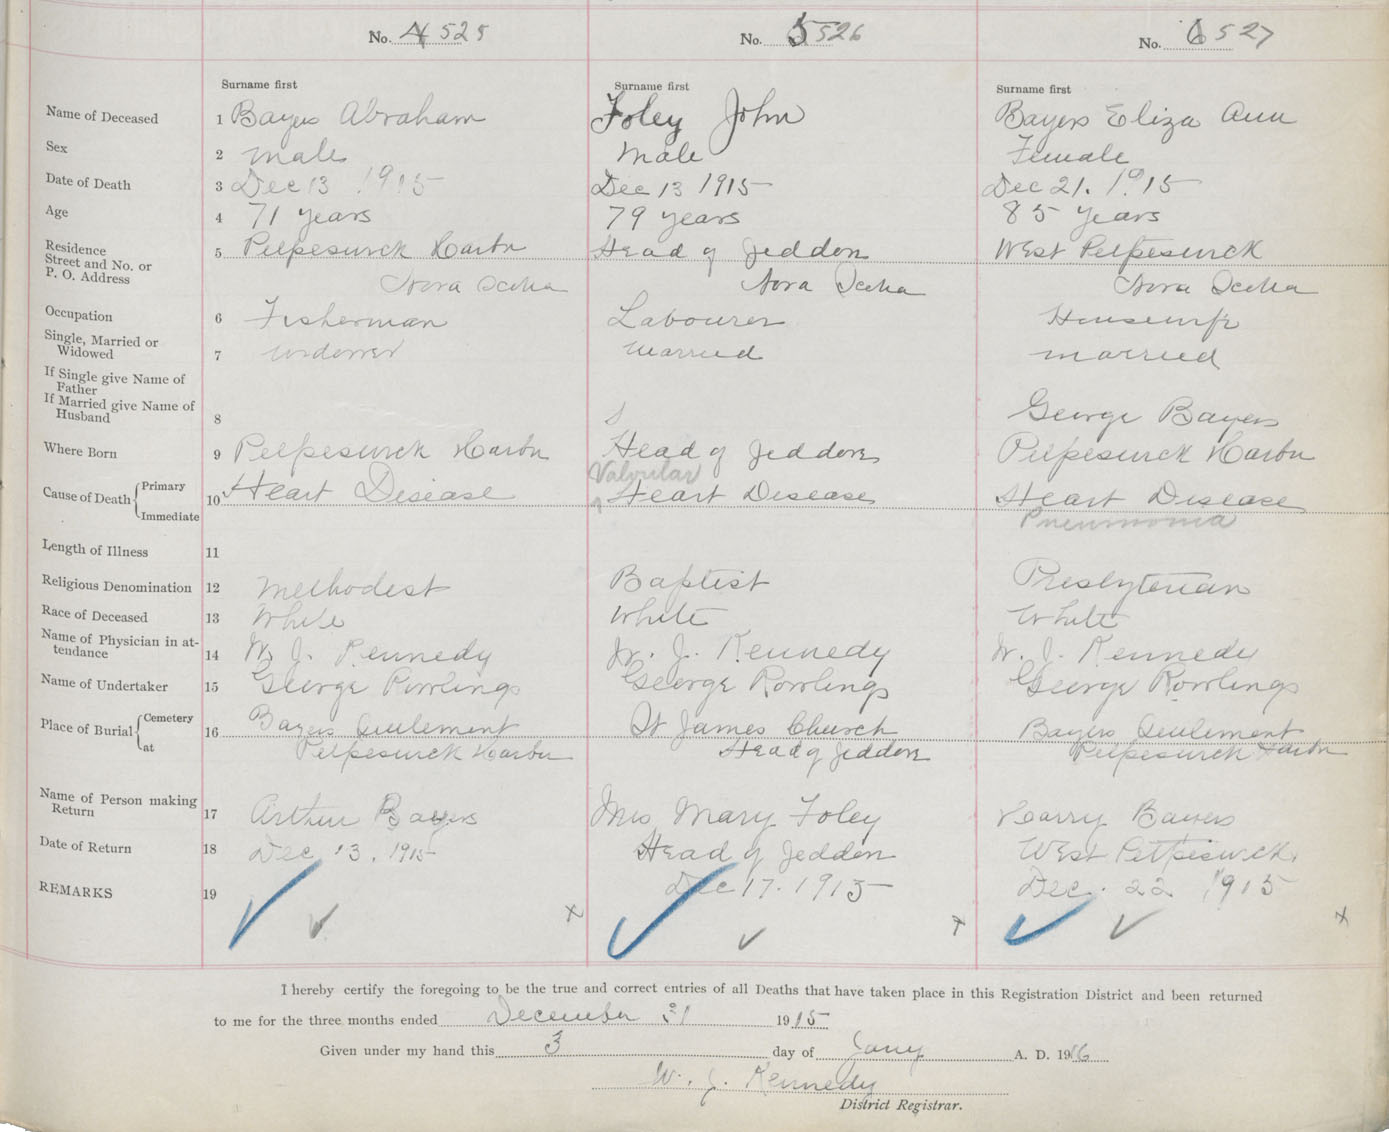 No. 4 525 No. 5 526 No. 6 527
Surname first Surname first Surname first
Name of Deceased 1 Bayers Abraham Foley John Bayers Eliza Ann
Sex 2 male Male Female
Date of Death 3 Dec 13 1915 Dec 13 1915 Dec 21. 1915
Age 4 71 years 79 years 85 years
Residence
Street and No. or 5 Petpeswick Harbor Head of Jeddore West Petpeswick
P. O. Address Nova Scotia Nova Scotia Nova Scotia
Occupation 6 Fisherman Labourer Housewife
Single, Married or
Widowed 7 widower married married
If Single give Name of
Father
If Married give Name of
Husband 8 George Bayers
Where Born 9 Petpeswick Harbor Head of Jeddore Petpeswick Harbor
Valvular
Cause of Death Primary 10 Heart Disease Heart Disease Heart Disease
Immediate Pneumonia
Length of Illness 11
Religious Denomination 12 Methodest Baptist Presbyterian
Race of Deceased 13 White White White
Name of Physician in at-
tendance 14 W. J. Kennedy W. J. Kennedy W. J. Kennedy
Name of Undertaker 15 George Rowlings George Rowlings George Rowlings
Place of Burial Cemetery 16 Bayers Settlement St James Church Bayers Settlement
at Petpeswick Harbor Head of Jeddore Petpeswick Harbor
Name of Person making
Return 17 Arthur Bayers Mrs Mary Foley Harry Bayers
Date of Return 18 Dec 13, 1915 Head of Jeddore West Petpeswick
REMARKS 19 Dec 17. 1915 Dec. 22 1915
I hereby certify the foregoing to be the true and correct entries of all Deaths that have taken place in this Registration District and been returned
to me for the three months ended December 31 1915
Given under my hand this 3 day of Jany A. D. 1916
W. J. Kennedy
District Registrar.